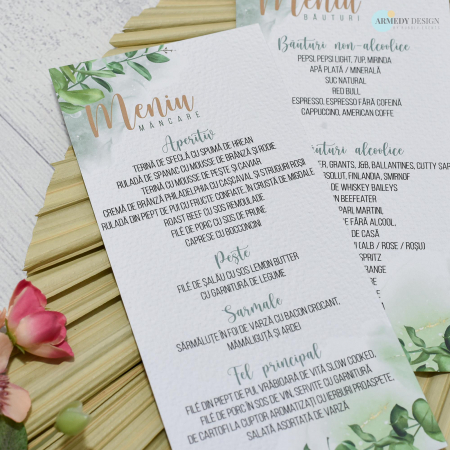 ARMEDY DESIGN
Meniu
MÂNCARE
Aperitiv
TERINĂ DE SFECLĂ CU SPUMĂ DE HREAN
RULADĂ DE SPANAC CU MOUSSE DE BRÂNZĂ ȘI RODIE
TERINĂ CU MOUSSE DE PEȘTE ȘI CAVIAR
CREMĂ DE BRÂNZĂ PHILADELPHIA CU CAȘCAVAL ȘI STRUGURI ROȘII
RULADĂ DIN PIEPT DE PUI CU FRUCTE CONFIATE, ÎN CRUSTĂ DE MIGDALE
ROAST BEEF CU SOS REMOULADE
FILÉ DE PORC CU SOS DE PRUNE
CAPRESE CU BOCCONCINI
Pește
FILÉ DE ȘALĂU CU SOS LEMON BUTTER
CU GARNITURĂ DE LEGUME
Sarmale
SĂRMĂLUȚE ÎN FOI DE VARZĂ CU BACON CROCANT,
MĂMĂLIGUȚĂ ȘI ARDEI
Fel principal
FILÉ DIN PIEPT DE PUI, VRĂBIOARĂ DE VITĂ SLOW COOKED,
FILÉ DE PORC ÎN SOS DE VIN, SERVITE CU GARNITURĂ
DE CARTOFI LA CUPTOR AROMATIZAȚI CU IERBURI PROASPETE,
SALATĂ ASORTATĂ DE VARZĂ
Meniu
BĂUTURI
Băuturi non-alcoolice
PEPSI, PEPSI LIGHT, 7UP, MIRINDA
APĂ PLATĂ / MINERALĂ
SUC NATURAL
RED BULL
ESPRESSO, ESPRESSO FĂRĂ COFEINĂ
CAPPUCINO, AMERICAN COFFE
uturi alcoolice
ER, GRANTS, J&B, BALLANTINES, CUTTY SAR
SOLUT, FINLANDIA, SMIRNOF
DE WHISKEY BAILEYS
N BEEFEATER
ARL MARTINI,
E FĂRĂ ALCOOL,
DE CASĂ
(ALB / ROSE / ROȘU)
SPRITZ
RANGE